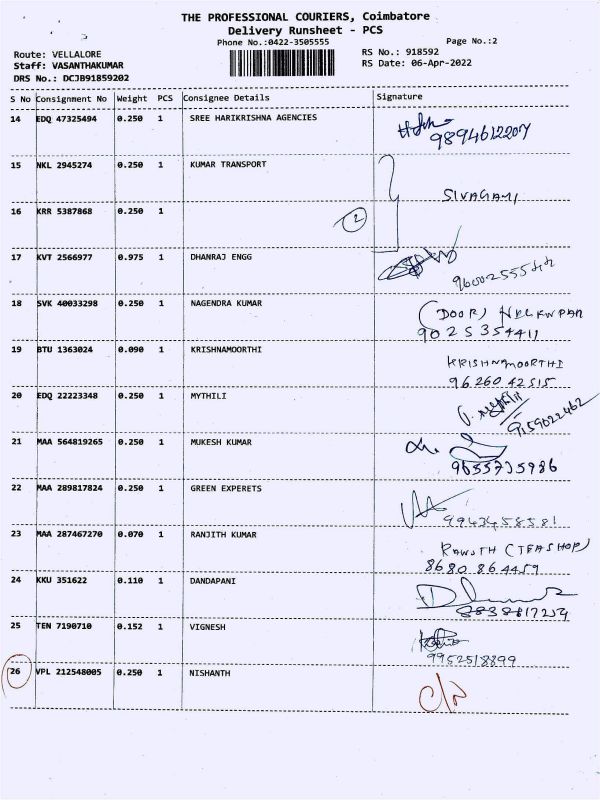 THE PROFESSIONAL COURIERS, Coimbatore
Delivery Runsheet - PCS
Phone No.:0422-3505555
Page No.:2
Route: VELLALORE
RS No.: 918592
Staff: VASANTHAKUMAR
RS Date: 06-Apr-2022
DRS No.: DCJB91859202
S No Consignment No Weight PCS Consignee Details Signature
14 EDQ 47325494 0.250 1 SREE HARIKRISHNA AGENCIES
9894612207
15 NKL 2945274 0.250 1 KUMAR TRANSPORT
SIVAGAMI
16 KRR 5387868 0.250 1
2
17 KVT 2566977 0.975 1 DHANRAJ ENGG
18 SVK 40033298 0.250 1 NAGENDRA KUMAR
(DOOR)
90 25 354411
19 BTU 1363024 0.090 1 KRISHNAMOORTHI
KRISHNAMOORTHI
96 260 42515
20 EDQ 22223348 0.250 1 MYTHILI
9159022462
21 MAA 564819265 0.250 1 MUKESH KUMAR
9655735986
22 MAA 289817824 0.250 1 GREEN EXPERETS
9943458581
23 MAA 287467270 0.070 1 RANJITH KUMAR
(TEASHOP)
8680 864459
24 KKU 351622 0.110 1 DANDAPANI
8838817259
25 TEN 7190710 0.152 1 VIGNESH
9952518899
26 VPL 212548005 0.250 1 NISHANTH